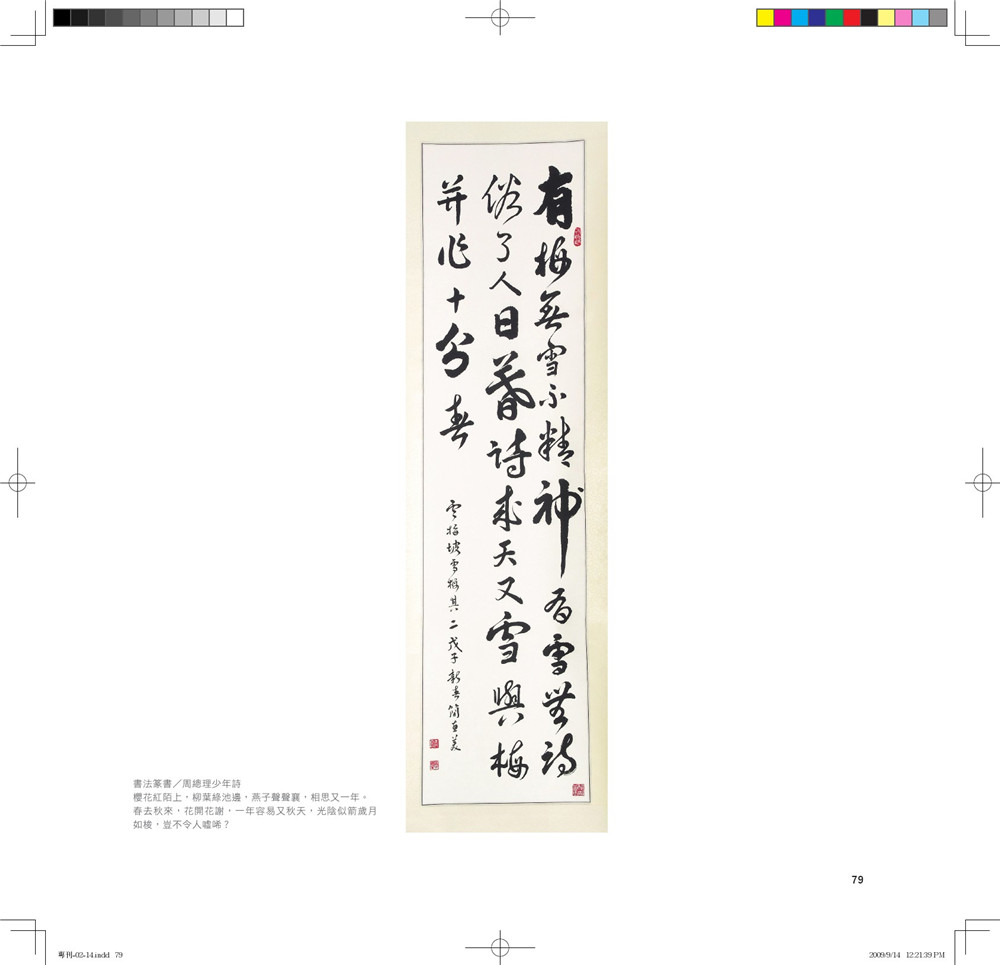 有梅無雪不精神有雪無詩
俗了人日暮詩成天又雪與梅
并作十分春
雪梅
其二戊子新春簡
書法篆書／周總理少年詩
櫻花紅陌上，柳葉綠池邊，燕子聲聲襄，相思又一年。
春去秋來，花開花謝，一年容易又秋天，光陰似箭歲月
如梭，豈不令人噓唏？
79
專刊-02-14.indd 79
2009/9/14 12:21:39 PM